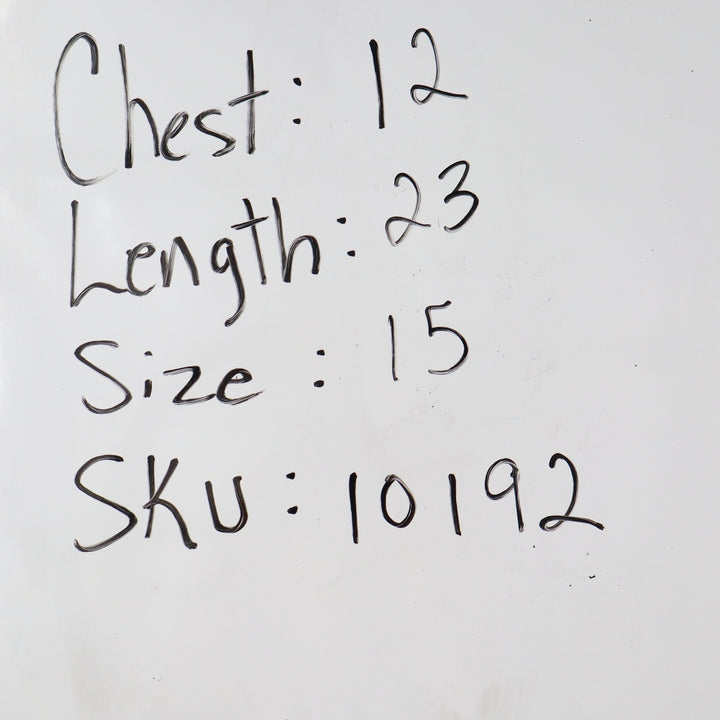 Chest: 12
Length: 23
Size: 15
SKU: 10192